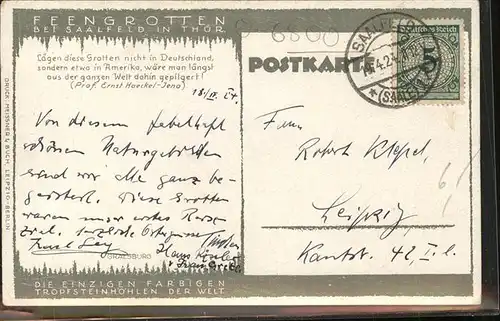 FEENGROTTEN
BEI SAALFELD IN THÜR.
Lägen diese Grotten nicht in Deutschland,
sondern etwa in Amerika, wäre man längst
aus der ganzen Welt dahin gepilgert!
(Prof. Ernst Haeckel-Jena)
18/IV. 24.
Von diesem fabelhaft
schönen Naturgebilden
sind wir Alle ganz be-
geistert. Diese Grotten
waren unser erstes Reise
ziel. Herzliche
GRALSBURG
DIE EINZIGEN FARBIGEN
TROPFSTEINHÖHLEN DER WELT
DRUCK: MEISSNER & BUCH, LEIPZIG-BERLIN
6800
POSTKARTE
SAALFELD
.4.24
★(SAALE)
Deutsches Reich
5
Firma
Robert
Leipzig
Kantstr. 42, I. l.